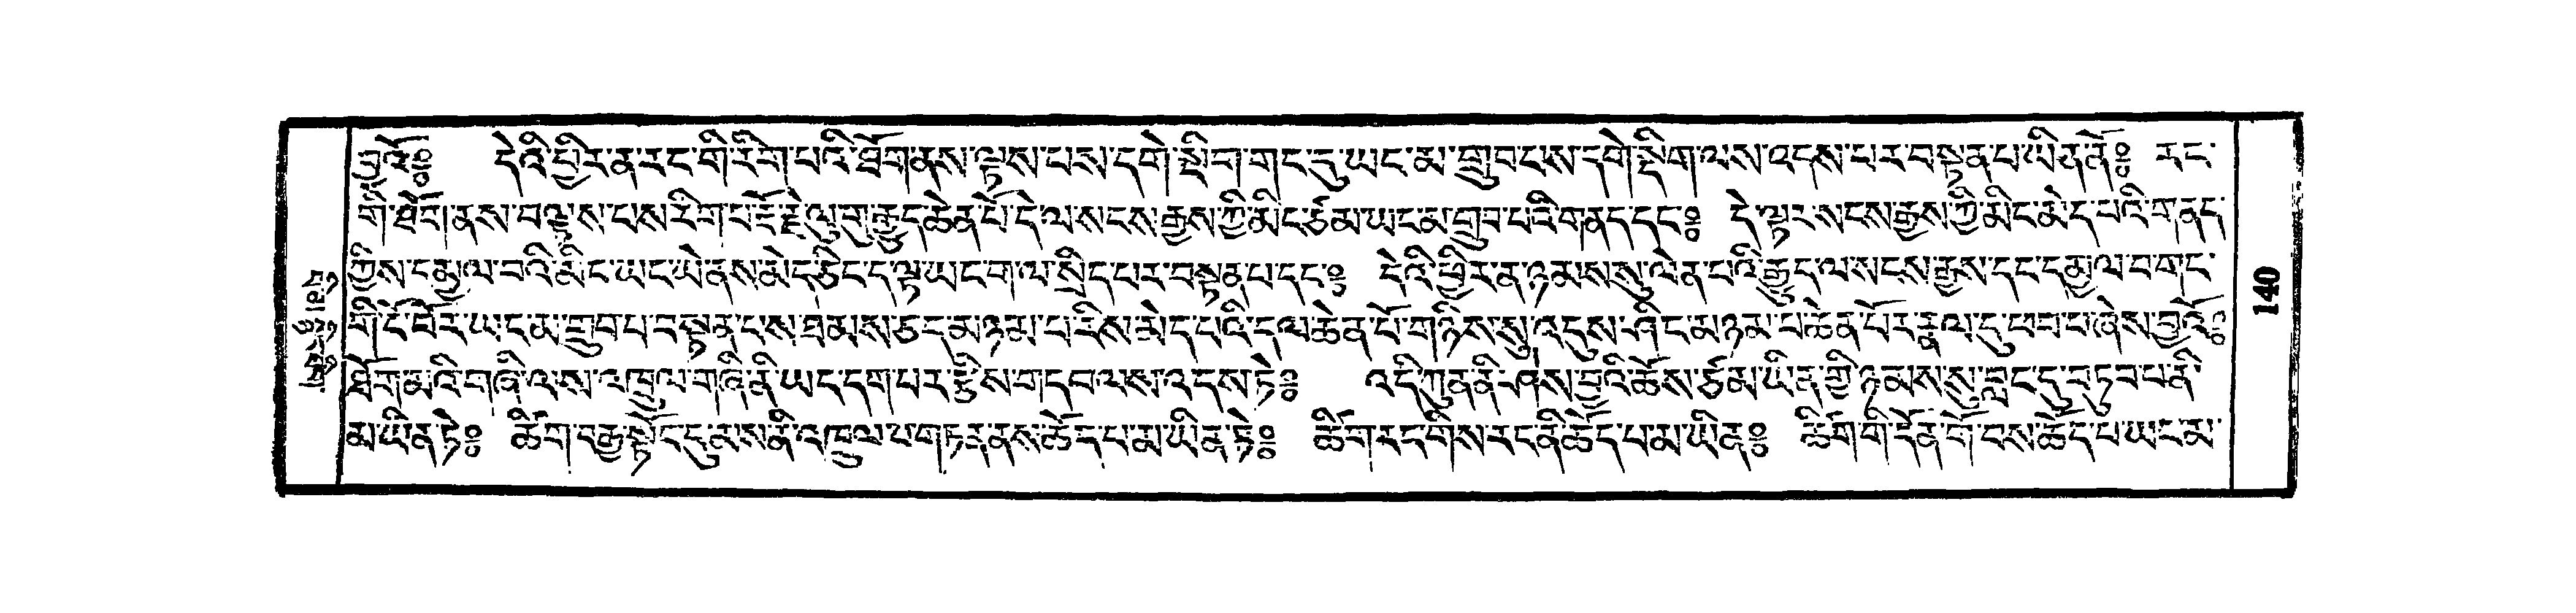 བྱའོ༔ དེའི་ཕྱིར་ན་རང་གི་རིག་པའི་ཐོག་ནས་ལྟས་པས་དགེ་སྡིག་གང་དུ་ཡང་མ་གྲུབ་པས་དགེ་སྡིག་ལས་འདས་པར་བསྟན་པ་ཡིན་ནོ༔ རང་
གི་ཐོག་ནས་བལྟས་པས་རིག་པ་རྡོ་རྗེ་ལུ་གུ་རྒྱུད་ཆེན་པོ་དེ་ལ་སངས་རྒྱས་ཀྱི་མིང་ཙམ་ཡང་མ་གྲུབ་པའི་གནད་དང༔ དེ་ལྟར་སངས་རྒྱས་ཀྱི་མིང་མེད་པའི་གནད་
ཀྱིས་དམྱལ་བའི་མིང་ཡང་ཡེ་ནས་མེད་ཅིང་ད་ལྟ་ཡང་ག་ལ་སྲིད་པར་བསྟན་པ་དང༔ དེའི་ཕྱིར་ན་ཉམས་སུ་ལེན་པའི་རྒྱུད་ལ་སངས་རྒྱས་དང་དམྱལ་བ་གང་
གི་ངོ་བོར་ཡང་མ་གྲུབ་པ་བསྟན་པས་ཐམས་ཅད་མཉམ་པ་རིས་མེད་པའི་དལ་ཆེན་པོ་གཉིས་སུ་འདུས་ཤིང་མཉམ་པ་ཆེན་པོར་རྣལ་དུ་ཕབ་པ་ཞེས་བྱའོ༔
ཐོག་མའི་གཞི་ལས་འཁྲུལ་གཞི་ནི་ཡང་དག་པར་རྩིས་གདབ་ལས་འདས་ཏེ༔ འདི་ཀུན་ནི་ཤེས་བྱའི་ཆོས་ཙམ་ཡིན་གྱི་ཉམས་སུ་བླང་དུ་བཏུབ་པ་ནི་
མ་ཡིན་ཏེ༔ ཚིག་བརྒྱ་སྟོང་དུ་མས་ནི་འཁྲུལ་པ་གཏན་ནས་ཆོད་པ་མ་ཡིན་ཏེ༔ ཚིག་རང་གིས་རང་ནི་ཆོད་པ་མ་ཡིན༔ ཚིག་གི་དོན་གོ་བས་ཆོད་པ་ཡང་མ་
141